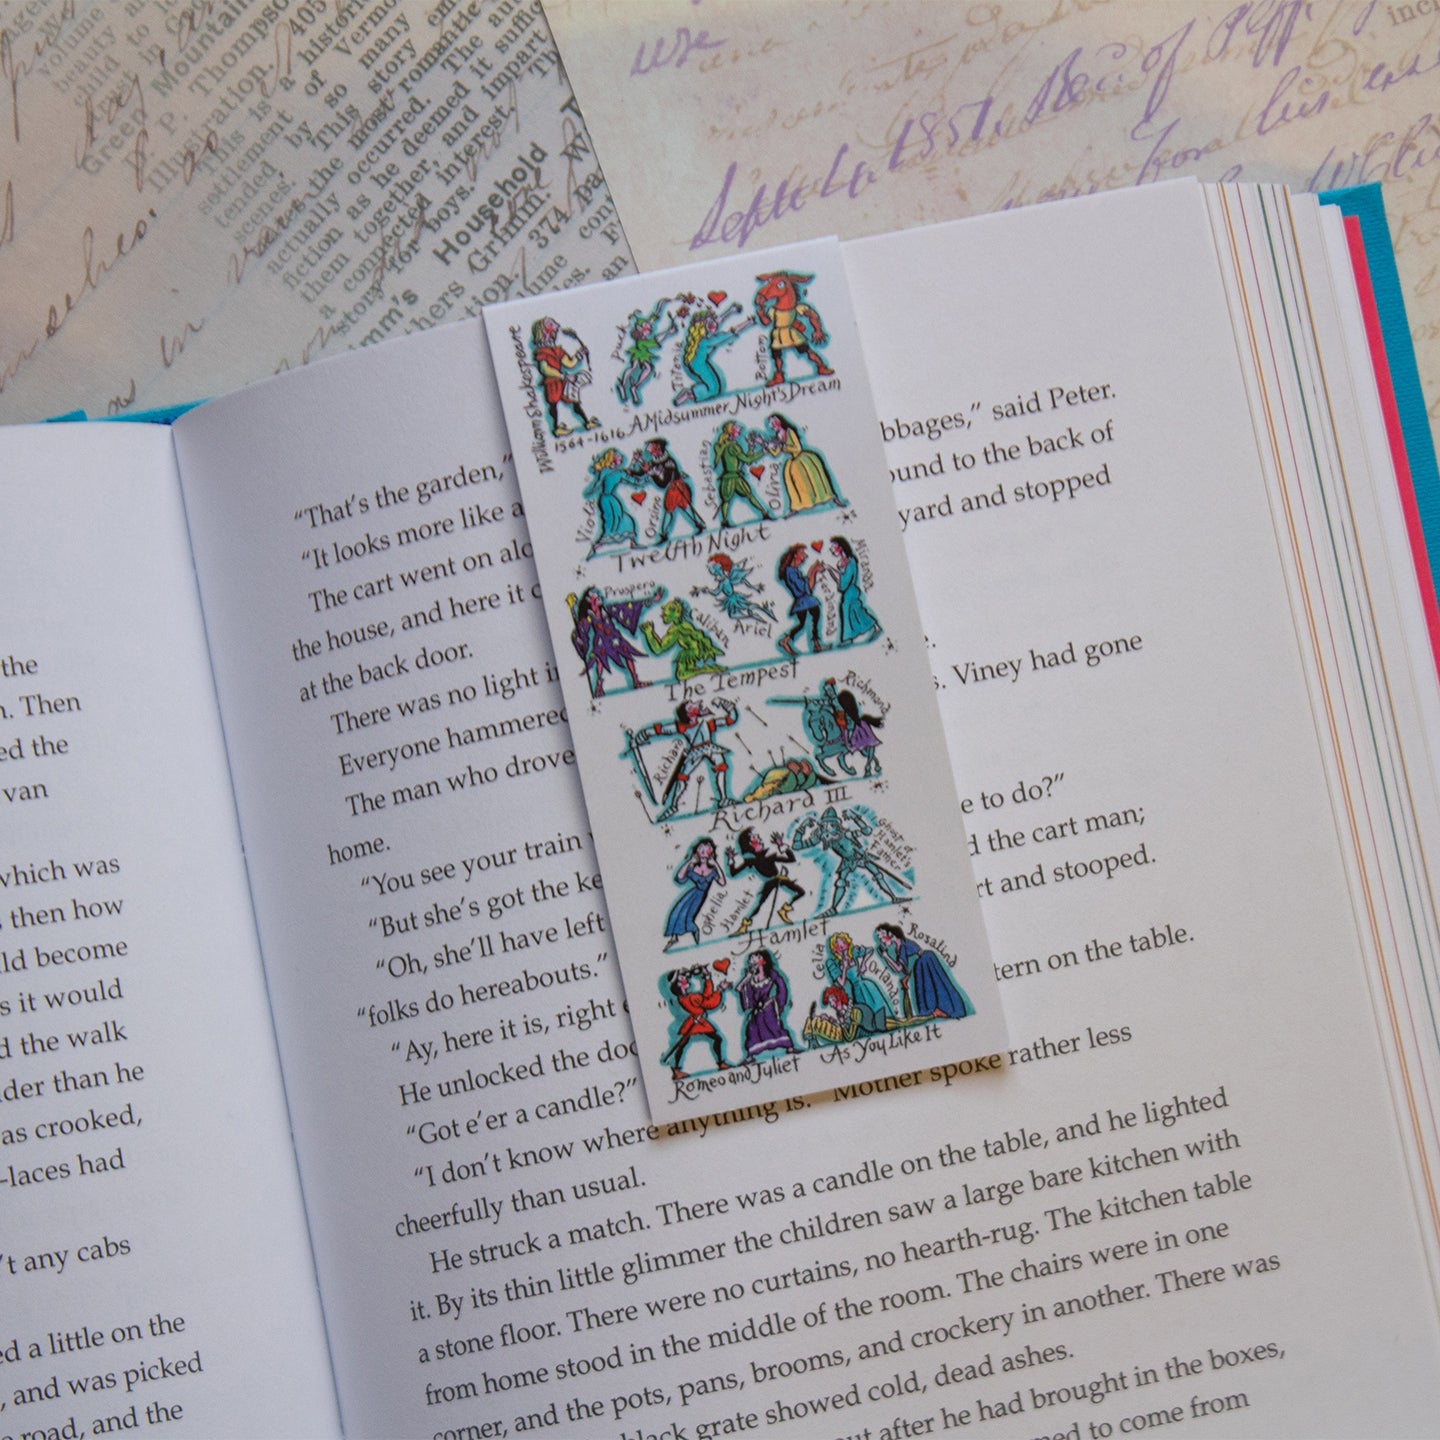 volume
beauty
child to
Green Mountain
D. P. Thompson
Illustration. 405
This is a historic
settlement of Vermont
tended by so many
scenes. This story em
the most romantic
actually occurred. The au
fiction as he deemed it suffic
them together, and impart
a connected interest.
story for boys.
Household
Grimm. 374 pa
use
Sept 1857. Rec of
William Shakespeare
1564-1616
Puck
Titania
Bottom
A Midsummer Night's Dream
Viola
Orsino
Sebastian
Olivia
Twelfth Night
Prospero
Caliban
Ariel
Ferdinand
Miranda
The Tempest
Richard
Richmond
Richard III
Ophelia
Hamlet
Ghost of
Hamlet's
Father
Hamlet
Romeo and Juliet
Celia
Orlando
Rosalind
As You Like It
the
n. Then
ed the
van
which was
s then how
ld become
s it would
d the walk
der than he
as crooked,
-laces had
't any cabs
ed a little on the
, and was picked
road, and the
“That’s the garden,” bbages,” said Peter.
“It looks more like a ound to the back of
The cart went on alo yard and stopped
the house, and here it c
at the back door.
There was no light i s. Viney had gone
Everyone hammered
The man who drove
home.
“You see your train e to do?”
“But she’s got the ke d the cart man;
“Oh, she’ll have left rt and stooped.
“folks do hereabouts.”
“Ay, here it is, right tern on the table.
He unlocked the doo
“Got e’er a candle?”
“I don’t know where anything is.” Mother spoke rather less
cheerfully than usual.
He struck a match. There was a candle on the table, and he lighted
it. By its thin little glimmer the children saw a large bare kitchen with
a stone floor. There were no curtains, no hearth-rug. The kitchen table
from home stood in the middle of the room. The chairs were in one
corner, and the pots, pans, brooms, and crockery in another. There was
black grate showed cold, dead ashes.
out after he had brought in the boxes,
med to come from